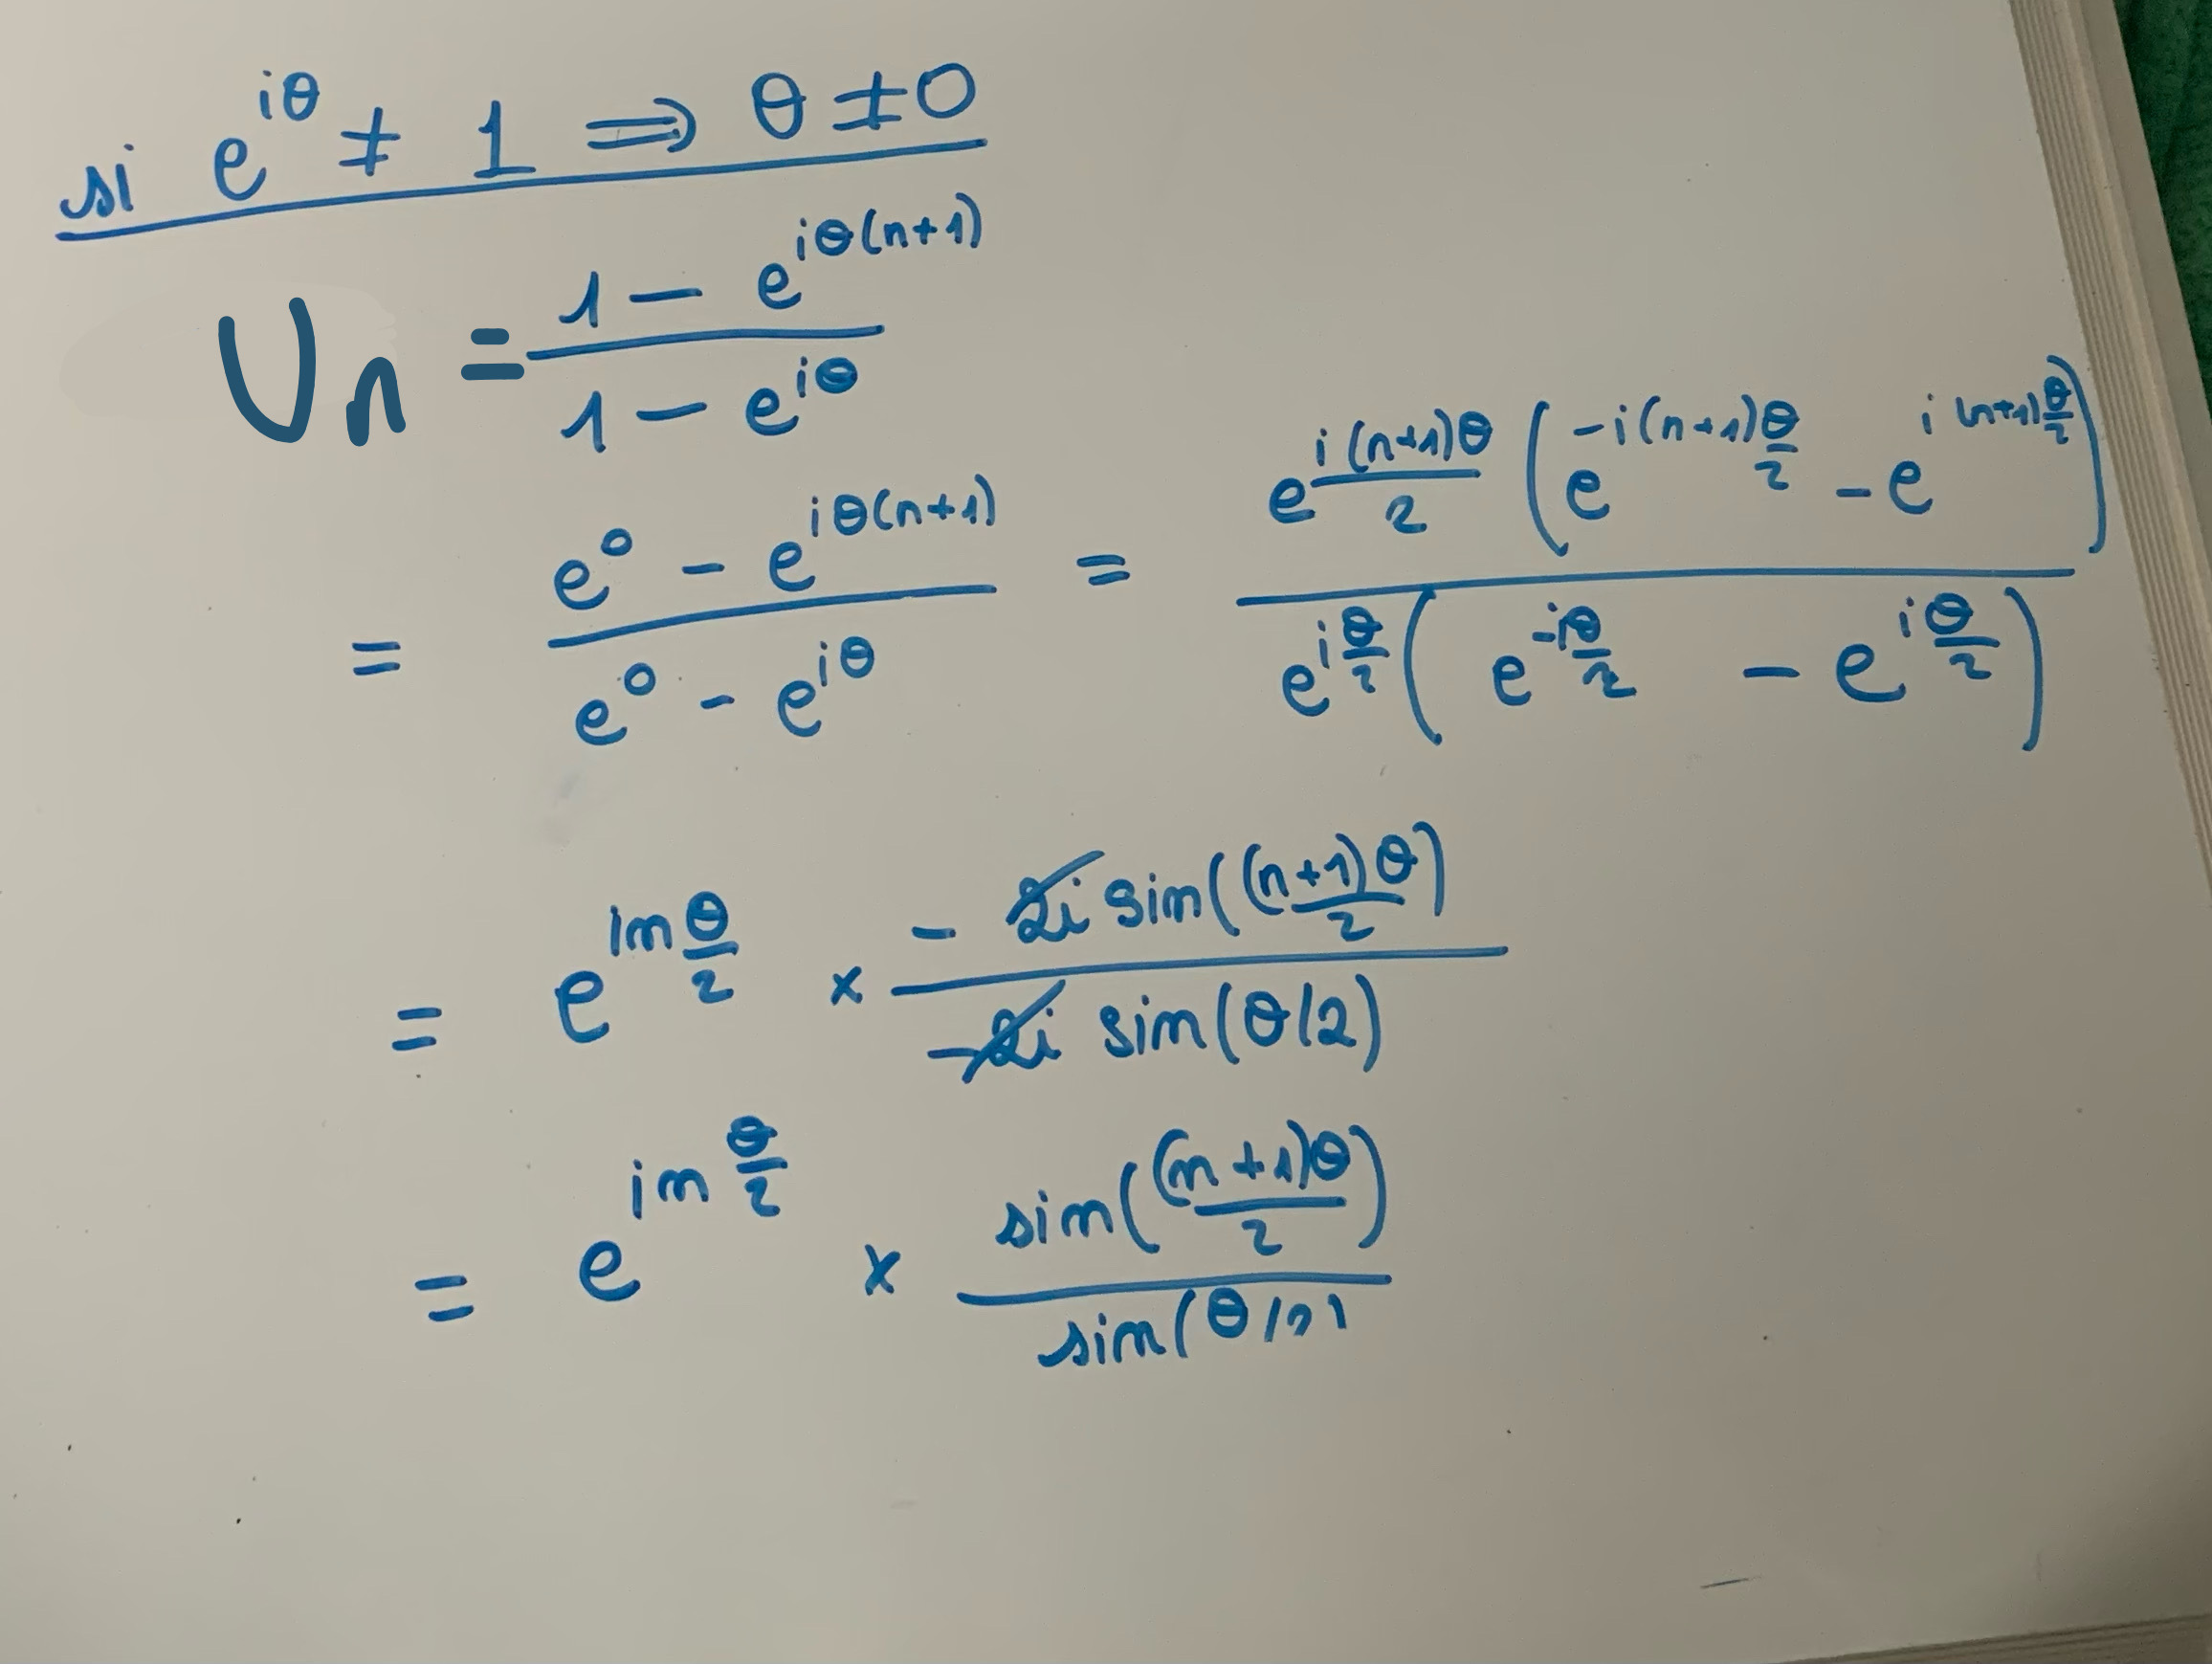 si e^{iθ} ≠ 1 ⟹ θ ≠ 0
Un = \frac{1 - e^{iθ(n+1)}}{1 - e^{iθ}}
= \frac{e^0 - e^{iθ(n+1)}}{e^0 - e^{iθ}} = \frac{e^{\frac{i(n+1)θ}{2}} (e^{-i(n+1)\frac{θ}{2}} - e^{i(n+1)\frac{θ}{2}})}{e^{i\frac{θ}{2}} (e^{-i\frac{θ}{2}} - e^{i\frac{θ}{2}})}
= e^{in\frac{θ}{2}} × \frac{-2i sin(\frac{(n+1)θ}{2})}{-2i sin(θ/2)}
= e^{in\frac{θ}{2}} × \frac{sin(\frac{(n+1)θ}{2})}{sin(θ/2)}